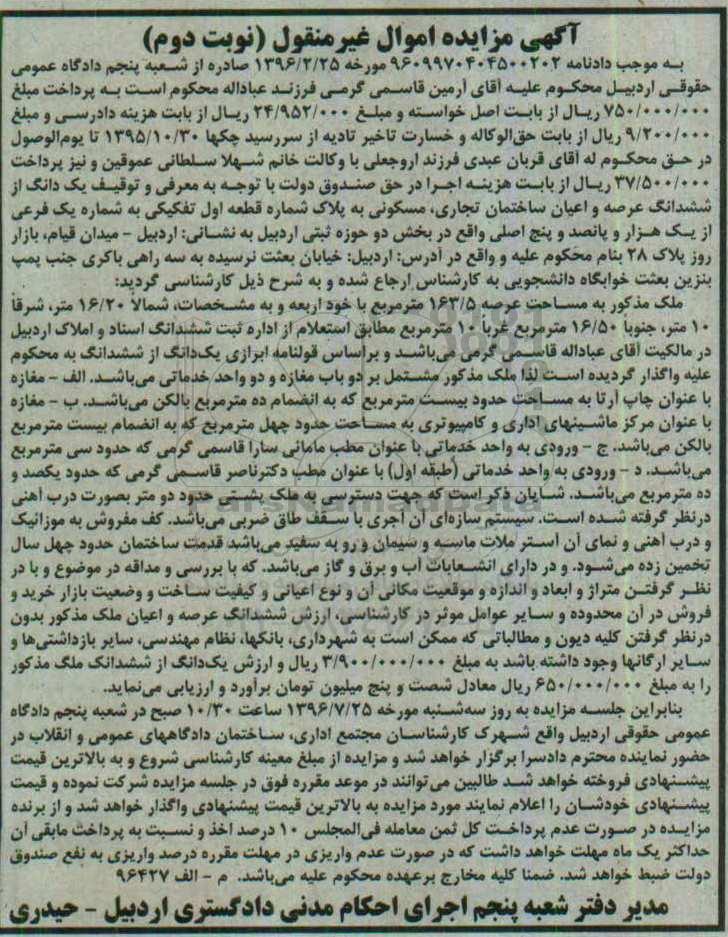 آگهی مزایده اموال غیرمنقول (نوبت دوم)
به موجب دادنامه ۹۶۰۹۹۷۰۴۰۴۵۰۰۲۰۲ مورخه ۱۳۹۶/۲/۲۵ صادره از شعبه پنجم دادگاه عمومی
حقوقی اردبیل محکوم علیه آقای آرمین قاسمی گرمی فرزند عباداله محکوم است به پرداخت مبلغ
۷۵۰/۰۰۰/۰۰۰ ریال از بابت اصل خواسته و مبلغ ۲۴/۹۵۲/۰۰۰ ریال از بابت هزینه دادرسی و مبلغ
۹/۲۰۰/۰۰۰ ریال از بابت حق‌الوکاله و خسارت تاخیر تادیه از سررسید چکها ۱۳۹۵/۱۰/۳۰ تا یوم‌الوصول
در حق محکوم له آقای قربان عبدی فرزند اروجعلی با وکالت خانم شهلا سلطانی عموقین و نیز پرداخت
۳۷/۵۰۰/۰۰۰ ریال از بابت هزینه اجرا در حق صندوق دولت با توجه به معرفی و توقیف یک دانگ از
ششدانگ عرصه و اعیان ساختمان تجاری، مسکونی به پلاک شماره قطعه اول تفکیکی به شماره یک فرعی
از یک هزار و پانصد و پنج اصلی واقع در بخش دو حوزه ثبتی اردبیل به نشانی: اردبیل - میدان قیام، بازار
روز پلاک ۲۸ بنام محکوم علیه و واقع در آدرس: اردبیل: خیابان بعثت نرسیده به سه راهی باکری جنب پمپ
بنزین بعثت خوابگاه دانشجویی به کارشناس ارجاع شده و به شرح ذیل کارشناسی گردید:
ملک مذکور به مساحت عرصه ۱۶۳/۵ مترمربع با خود اربعه و به مشخصات، شمالاً ۱۶/۲۰ متر، شرقاً
۱۰ متر، جنوباً ۱۶/۵۰ مترمربع غرباً ۱۰ مترمربع مطابق استعلام از اداره ثبت ششدانگ اسناد و املاک اردبیل
در مالکیت آقای عباداله قاسمی گرمی می‌باشند و براساس قولنامه ابرازی یک‌دانگ از ششدانگ به محکوم
علیه واگذار گردیده است لذا ملک مذکور مشتمل بر دو باب مغازه و دو واحد خدماتی می‌باشد. الف - مغازه
با عنوان چاپ آرتا به مساحت حدود بیست مترمربع که به انضمام ده مترمربع بالکن می‌باشد. ب - مغازه
با عنوان مرکز ماشینهای اداری و کامپیوتری به مساحت حدود چهل مترمربع که به انضمام بیست مترمربع
بالکن می‌باشد. ج - ورودی به واحد خدماتی با عنوان مطب مامائی سارا قاسمی گرمی که حدود سی مترمربع
می‌باشد. د - ورودی به واحد خدماتی (طبقه اول) با عنوان مطب دکترناصر قاسمی گرمی که حدود یکصد و
ده مترمربع می‌باشد. شایان ذکر است که جهت دسترسی به ملک پشتی حدود دو متر بصورت درب آهنی
درنظر گرفته شده است. سیستم سازه‌ای آن آجری با سقف طاق ضربی می‌باشد. کف مفروش به موزائیک
و درب آهنی و نمای آن آستر ملات ماسه و سیمان و رو به سفید می‌باشد قدمت ساختمان حدود چهل سال
تخمین زده می‌شود. و در دارای انشعابات آب و برق و گاز می‌باشد. که با بررسی و مداقه در موضوع و با در
نظر گرفتن متراژ و ابعاد و اندازه و موقعیت مکانی آن و نوع اعیانی و کیفیت ساخت و وضعیت بازار خرید و
فروش در آن محدوده و سایر عوامل موثر در کارشناسی، ارزش ششدانگ عرصه و اعیان ملک مذکور بدون
درنظر گرفتن کلیه دیون و مطالباتی که ممکن است به شهرداری، بانکها، نظام مهندسی، سایر بازداشتی‌ها و
سایر ارگانها وجود داشته باشد به مبلغ ۳/۹۰۰/۰۰۰/۰۰۰ ریال و ارزش یک‌دانگ از ششدانک ملگ مذکور
را به مبلغ ۶۵۰/۰۰۰/۰۰۰ ریال معادل شصت و پنج میلیون تومان برآورد و ارزیابی می‌نماید.
بنابراین جلسه مزایده به روز سه‌شنبه مورخه ۱۳۹۶/۷/۲۵ ساعت ۱۰/۳۰ صبح در شعبه پنجم دادگاه
عمومی حقوقی اردبیل واقع شهرک کارشناسان مجتمع اداری، ساختمان دادگاههای عمومی و انقلاب در
حضور نماینده محترم دادسرا برگزار خواهد شد و مزایده از مبلغ معینه کارشناسی شروع و به بالاترین قیمت
پیشنهادی فروخته خواهد شد طالبین می‌توانند در موعد مقرره فوق در جلسه مزایده شرکت نموده و قیمت
پیشنهادی خودشان را اعلام نمایند مورد مزایده به بالاترین قیمت پیشنهادی واگذار خواهد شد و از برنده
مزایده در صورت عدم پرداخت کل ثمن معامله فی‌المجلس ۱۰ درصد اخذ و نسبت به پرداخت مابقی آن
حداکثر یک ماه مهلت خواهد داشت که در صورت عدم واریزی در مهلت مقرره درصد واریزی به نفع صندوق
دولت ضبط خواهد شد. ضمنا کلیه مخارج برعهده محکوم علیه می‌باشد. م - الف ۹۶۴۲۷
مدیر دفتر شعبه پنجم اجرای احکام مدنی دادگستری اردبیل - حیدری